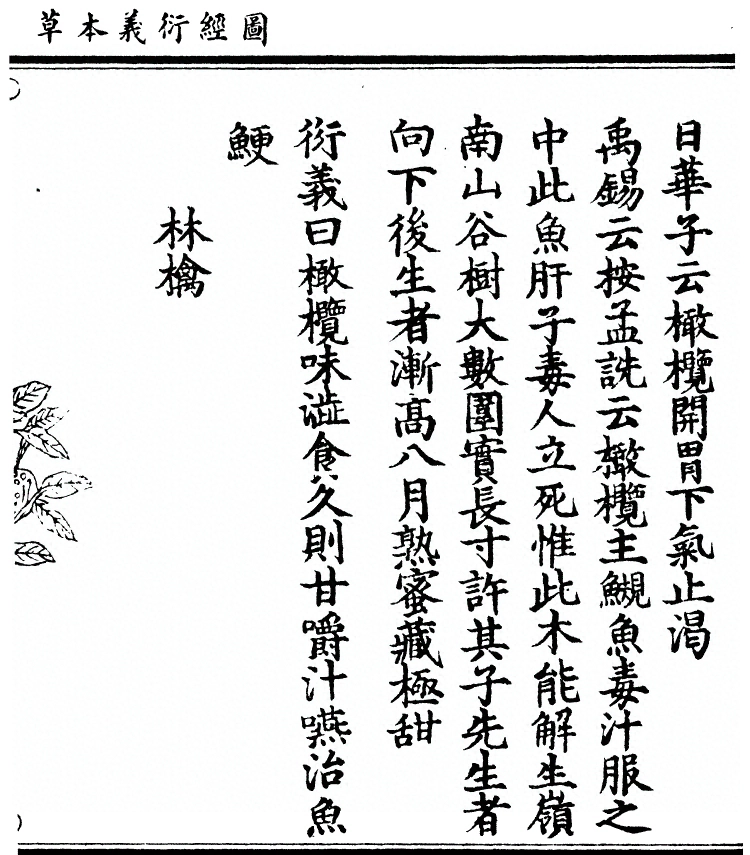 圖經衍義本草
日華子云橄欖開胃下氣止渴
禹錫云按孟詵云橄欖主䲅魚毒汁服之
中此魚肝子毒人立死惟此木能解生嶺
南山谷樹大數圍實長寸許其子先生者
向下後生者漸高八月熟蜜藏極甜
衍義曰橄欖味澁食久則甘嚼汁嚥治魚
鯁
林檎